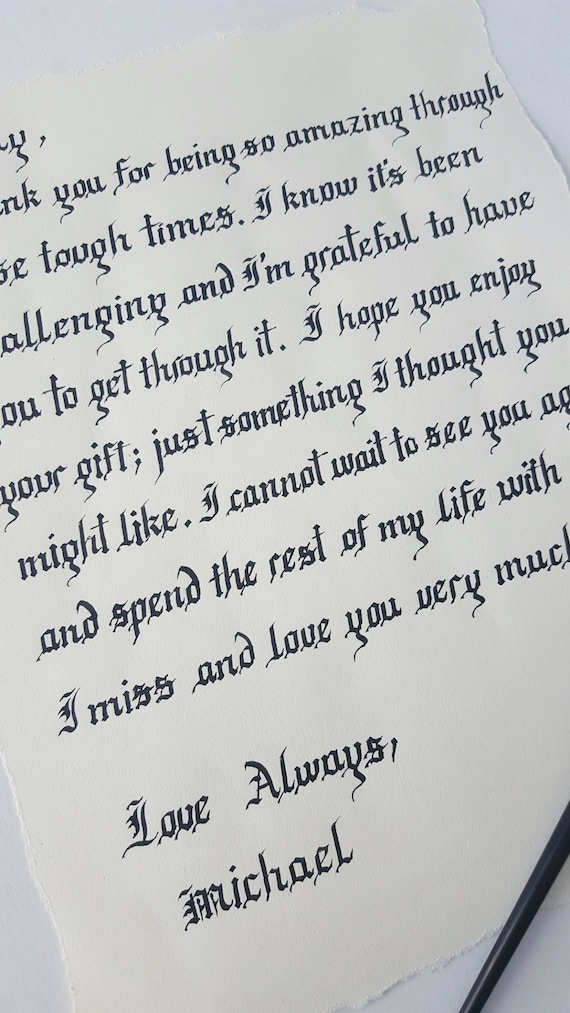 y,
nk you for being so amazing through
se tough times. I know it's been
allenging and I'm grateful to have
ou to get through it. I hope you enjoy
your gift; just something I thought you
might like. I cannot wait to see you ag
and spend the rest of my life with
I miss and love you very much
Love Always,
Michael